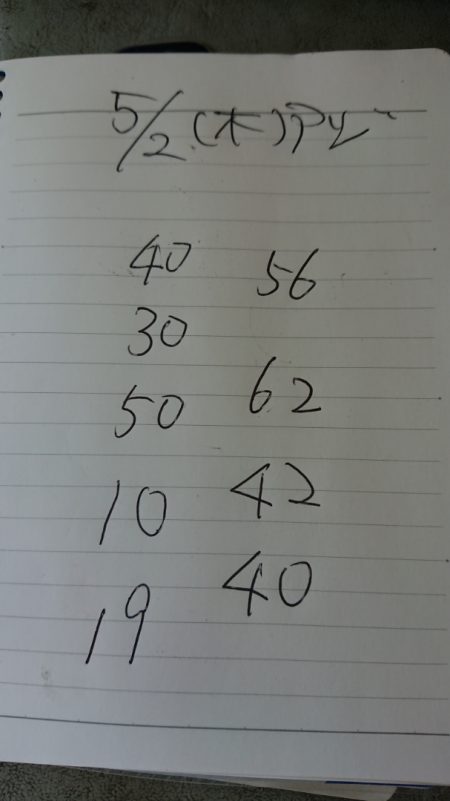 5/2(木)
40 56
30
50 62
10 42
19 40